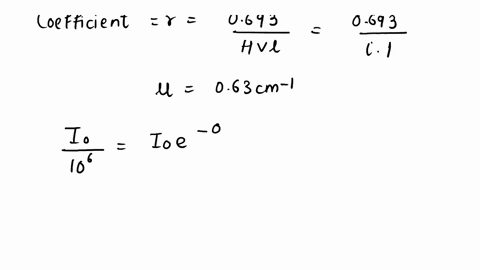 Coefficient = r = 0.693 / HVL = 0.693 / 1.1
μ = 0.63 cm⁻¹
I₀ / 10⁶ = I₀ e⁻⁰